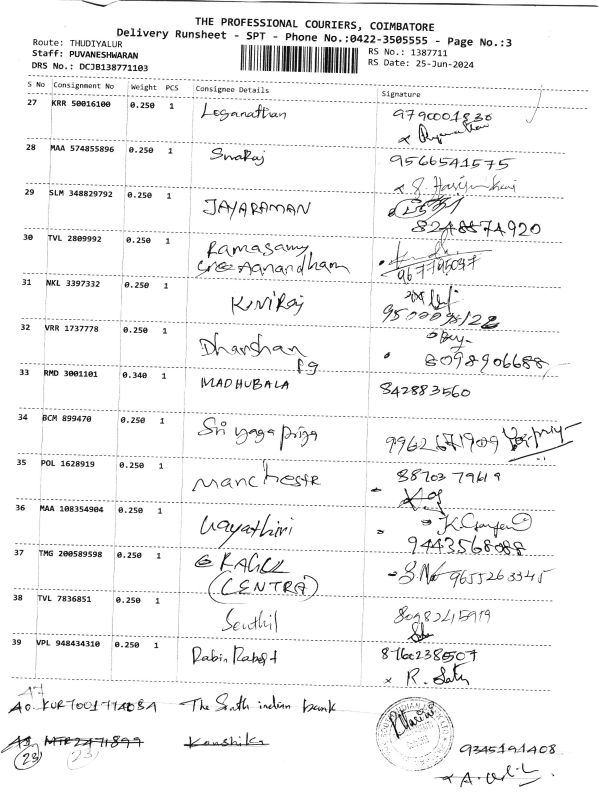 THE PROFESSIONAL COURIERS, COIMBATORE
Delivery Runsheet - SPT - Phone No.:0422-3505555 - Page No.:3
Route: THUDIYALUR
RS No.: 1387711
Staff: PUVANESHWARAN
RS Date: 25-Jun-2024
DRS No.: DCJB138771103
S No Consignment No Weight PCS Consignee Details Signature
27 KRR 50016100 0.250 1 Loganathan 9790001830
28 MAA 574855896 0.250 1 9566541575
29 SLM 348829792 0.250 1 JAYARAMAN
8248574920
30 TVL 2809992 0.250 1 Ramasamy
31 NKL 3397332 0.250 1
32 VRR 1737778 0.250 1 Dharshan
Pg 8098906688
33 RMD 3001101 0.340 1 MADHUBALA 842883560
34 BCM 899470 0.250 1 Sri yaga priya 9962671909
35 POL 1628919 0.250 1 Manchestr 88703 79619
36 MAA 108354904 0.250 1
9443568088
37 TMG 200589598 0.250 1 9655263345
(CENTRA)
38 TVL 7836851 0.250 1 Senthil
39 VPL 948434310 0.250 1 Rabin Robert 8760238507
R.
40 The South indian bank
Kaushika
(23) 23 9345191408